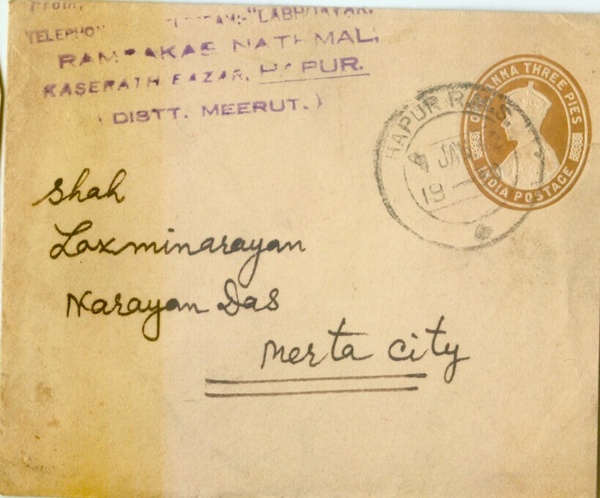 From,
"LABHDAYAK.
NATHMAL,
KASERATH BAZAR, HAPUR.
(DISTT. MEERUT.)
ANNA THREE PIES
INDIA POSTAGE
HAPUR R.M.S.
JAN
19
Shah
Laxminarayan
Narayan Das
Merta City